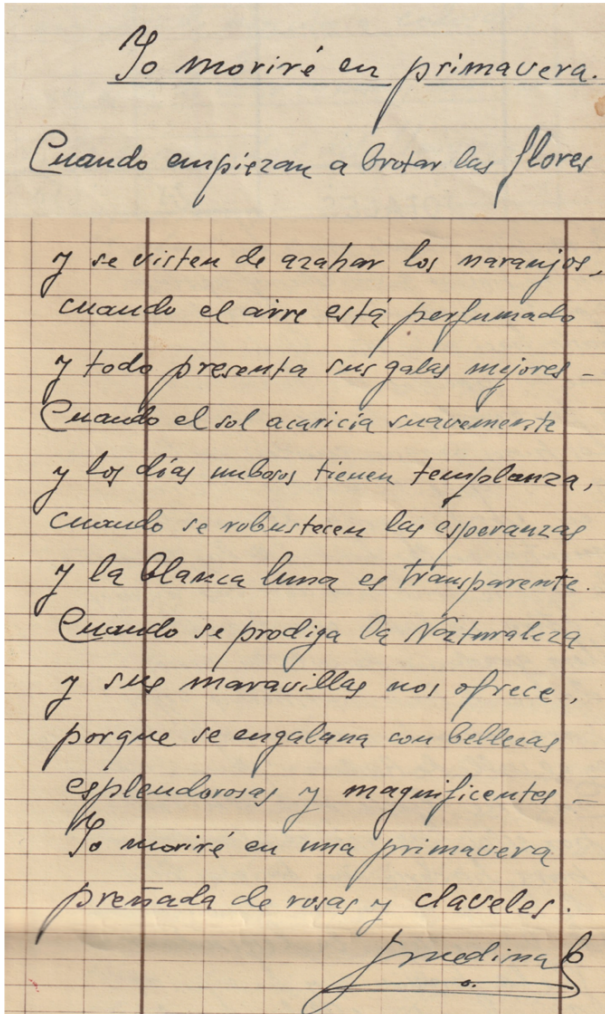 Yo moriré en primavera.
Cuando empiezan a brotar las flores
y se visten de azahar los naranjos,
cuando el aire está perfumado
y todo presenta sus galas mejores -
Cuando el sol acaricia suavemente
y los días nubosos tienen templanza,
cuando se robustecen las esperanzas
y la blanca luna es transparente.
Cuando se prodiga la Naturaleza
y sus maravillas nos ofrece,
porque se engalana con bellezas
esplendorosas y magnificentes -
Yo moriré en una primavera
preñada de rosas y claveles.